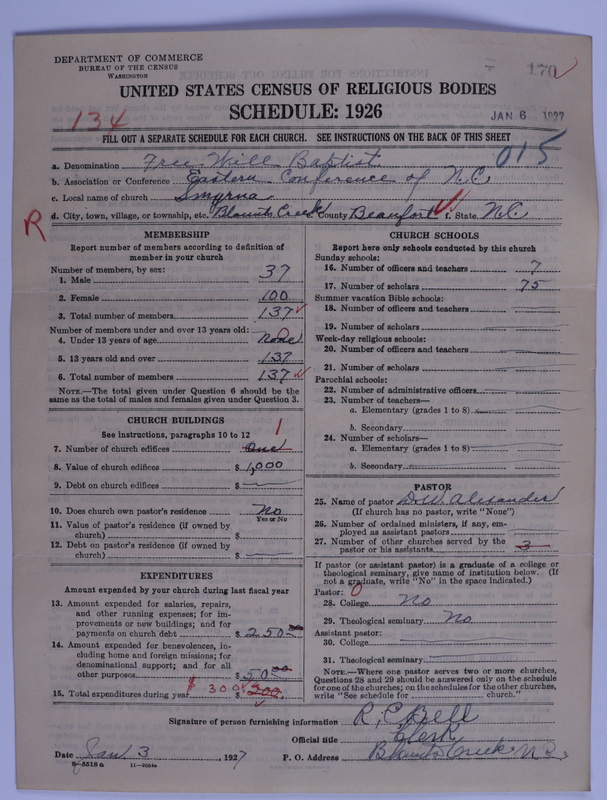 DEPARTMENT OF COMMERCE
BUREAU OF THE CENSUS
WASHINGTON
170
UNITED STATES CENSUS OF RELIGIOUS BODIES
SCHEDULE: 1926
JAN 6 1927
134
FILL OUT A SEPARATE SCHEDULE FOR EACH CHURCH. SEE INSTRUCTIONS ON THE BACK OF THIS SHEET
015
a. Denomination Free Will Baptist
b. Association or Conference Eastern Conference of N.C.
c. Local name of church Smyrna
d. City, town, village, or township, etc. Blounts Creek e. County Beaufort f. State N.C.
R
MEMBERSHIP
Report number of members according to definition of
member in your church
Number of members, by sex:
1. Male 37
2. Female 100
3. Total number of members 137
Number of members under and over 13 years old:
4. Under 13 years of age None 0
5. 13 years old and over 137
6. Total number of members 137
NOTE.—The total given under Question 6 should be the
same as the total of males and females given under Question 3.
CHURCH BUILDINGS
See instructions, paragraphs 10 to 12
1
7. Number of church edifices One
8. Value of church edifices $ 1,000
9. Debt on church edifices $
10. Does church own pastor's residence? No
Yes or No
11. Value of pastor's residence (if owned by
church) $
12. Debt on pastor's residence (if owned by
church) $
EXPENDITURES
Amount expended by church during last fiscal year
13. Amount expended for salaries, repairs,
and other running expenses; for im-
provements or new buildings; and for
payments on church debt $ 250.00
14. Amount expended for benevolences,
including home and foreign missions; for
denominational support; and for all
other purposes $ 50.00
15. Total expenditures during year $ 300 $ 300.
CHURCH SCHOOLS
Report here only schools conducted by this church
Sunday schools:
16. Number of officers and teachers 7
17. Number of scholars 75
Summer vacation Bible schools:
18. Number of officers and teachers
19. Number of scholars
Week-day religious schools:
20. Number of officers and teachers
21. Number of scholars
Parochial schools:
22. Number of administrative officers
23. Number of teachers—
a. Elementary (grades 1 to 8)
b. Secondary
24. Number of scholars—
a. Elementary (grades 1 to 8)
b. Secondary
PASTOR
25. Name of pastor D.W. Alexander
(If church has no pastor, write "None")
26. Number of ordained ministers, if any, em-
ployed as assistant pastors
27. Number of other churches served by the
pastor or his assistants 3
If pastor (or assistant pastor) is a graduate of a college or
theological seminary, give name of institution below. (If
not a graduate, write "No" in the space indicated.)
Pastor: 0
28. College No
29. Theological seminary No
Assistant pastor:
30. College
31. Theological seminary
NOTE.—Where one pastor serves two or more churches,
Questions 28 and 29 should be answered only on the schedule
for one of the churches; on the schedules for the other churches,
write "See schedule for church."
Signature of person furnishing information R. C. Bell
Official title Clerk
Date Jan 3, 1927 P. O. Address Blounts Creek N.C.
8-5518 a 11-9084a